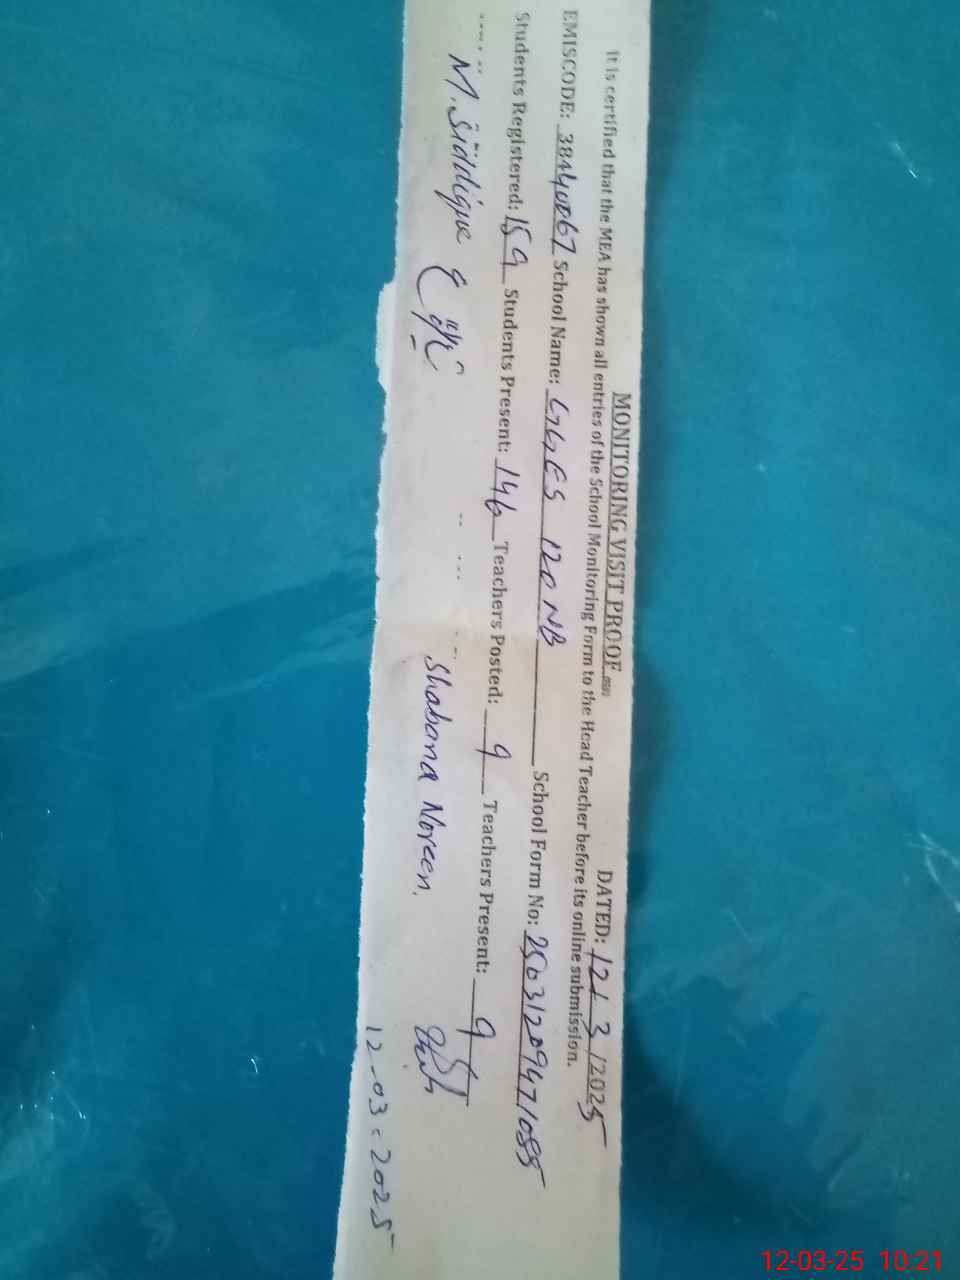 MONITORING VISIT PROOF
DATED: 12/ 3 /2025
It is certified that the MEA has shown all entries of the School Monitoring Form to the Head Teacher before its online submission.
EMISCODE: 38440067 School Name: GGES 120 NB School Form No: 25031209471085
Students Registered: 159 Students Present: 146 Teachers Posted: 9 Teachers Present: 9
M. Siddique
Shabana Noreen.
12-03-2025
12-03-25 10:21